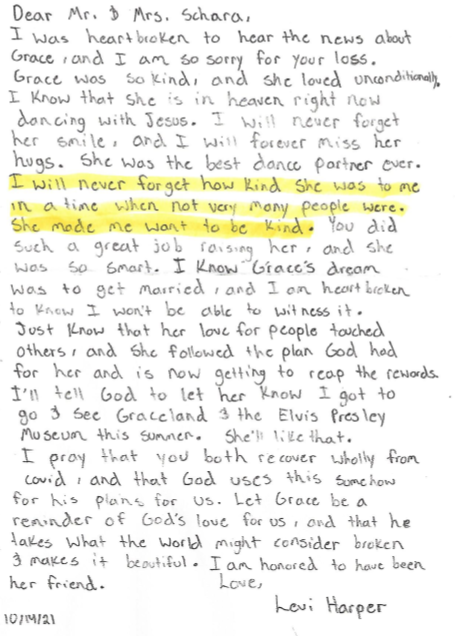 Dear Mr. & Mrs. Schara,
I was heartbroken to hear the news about
Grace, and I am so sorry for your loss.
Grace was so kind, and she loved unconditionally.
I know that she is in heaven right now
dancing with Jesus. I will never forget
her smile, and I will forever miss her
hugs. She was the best dance partner ever.
I will never forget how kind she was to me
in a time when not very many people were.
She made me want to be kind. You did
such a great job raising her, and she
was so smart. I know Grace's dream
was to get married, and I am heartbroken
to know I won't be able to witness it.
Just know that her love for people touched
others, and she followed the plan God had
for her and is now getting to reap the rewards.
I'll tell God to let her know I got to
go & see Graceland & the Elvis Presley
Museum this summer. She'll like that.
I pray that you both recover wholly from
covid, and that God uses this somehow
for his plans for us. Let Grace be a
reminder of God's love for us, and that he
takes what the world might consider broken
& makes it beautiful. I am honored to have been
her friend. Love,
Levi Harper
10/14/21